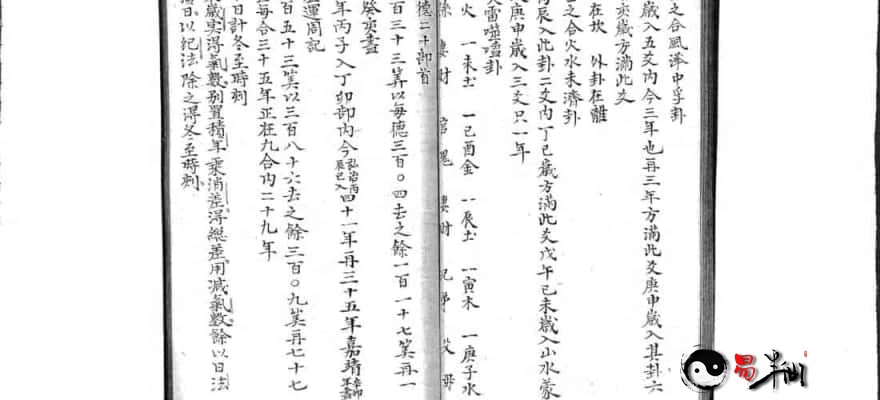 之合風澤中孚卦
歲入五爻內今三年也再三年方滿此爻庚申歲入其卦六
亥歲方滿此爻
在坎 外卦在離
之合火水未濟卦
辰入此卦二爻內丁巳歲方滿此爻戊午己未歲入山水蒙
庚申歲入三爻只一年
火雷噬嗑卦
火 一未土 一己酉金 一辰土 一寅木 一庚子水
妻財 官鬼 妻財 兄弟 父母
德二十卻首
百三十三筭以每德三百〇四去之餘一百一十七筭再一
癸亥盡
年丙子入丁卯卻內今弘治丙辰已入四十一年再三十五年嘉靖
運周記
百五十三筭以三百八十六去之餘三百〇九筭再七十七
每合三十五年正在九合內二十九年
日計冬至時刻
歲實得氣數別置積年乘消差得總差用減氣數餘以日法
日以紀法除之得冬至時刻
易半仙